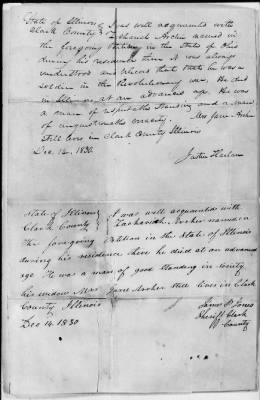 State of Illinois } I was well acquainted with
Clark County } Zachariah Archer named in
the foregoing Petition in the State of Ohio
during his residence there it was always
understood and believed that he was a
soldier in the Revolutionary war. He died
in Illinois, at an advanced age. He was
a man of respectable standing and a man
of unquestionable veracity. Mrs Jane Archer
still lives in Clark County Illinois
Dec. 14. 1830
Justin Harlan
State of Illinois } I was well acquainted with
Clark County } Zachariah Archer named in
the foregoing Petition in the State of Illinois
during his residence there he died at an advanced
age He was a man of good standing in society
his widow Mrs Jane Archer still lives in Clark
County Illinois
Dec 14. 1830
James P. Jones
Sheriff Clark
County